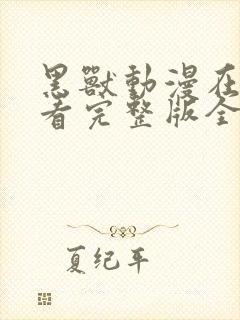 黑獸動漫在
看完整版全
夏纪年